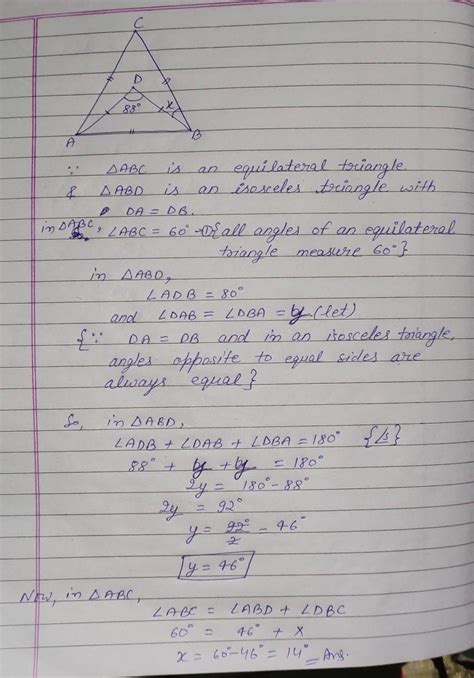 C
D
88°
x
A
B
∵ △ABC is an equilateral triangle
& △ABD is an isosceles triangle with
DA = DB.
in △ABC, ∠ABC = 60° -① {all angles of an equilateral
triangle measure 60°}
in △ABD,
∠ADB = 80°
and ∠DAB = ∠DBA = y (let)
{∵ DA = DB and in an isosceles triangle,
angles opposite to equal sides are
always equal}
So, in △ABD,
∠ADB + ∠DAB + ∠DBA = 180°
88° + y + y = 180°
2y = 180° - 88°
2y = 92°
y = 92°/2 = 46°
y = 46°
Now, in △ABC,
∠ABC = ∠ABD + ∠DBC
60° = 46° + x
x = 60° - 46° = 14° Ans.